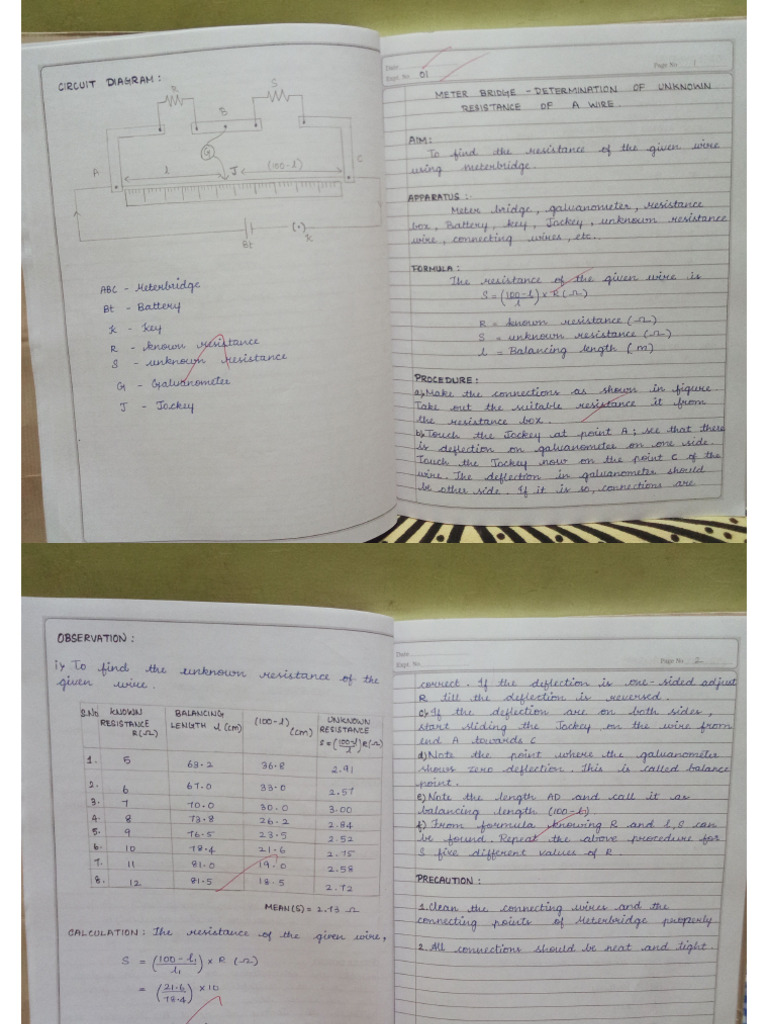 CIRCUIT DIAGRAM:
R
S
B
G
A
l
J
(100-l)
C
Bt
(•)
K
ABC - Meterbridge
Bt - Battery
K - Key
R - known resistance
S - unknown resistance
G - Galvanometer
J - Jockey
Date
Expt. No. 01
Page No. 1
METER BRIDGE - DETERMINATION OF UNKNOWN
RESISTANCE OF A WIRE.
AIM:
To find the resistance of the given wire
using meterbridge.
APPARATUS:
Meter bridge, galvanometer, resistance
box, Battery, key, Jockey, unknown resistance
wire, connecting wires, etc..
FORMULA:
The resistance of the given wire is
S = (100-l/l) × R (Ω)
R = known resistance (Ω)
S = unknown resistance (Ω)
l = Balancing length (m)
PROCEDURE:
a) Make the connections as shown in figure.
Take out the suitable resistance it from
the resistance box.
b) Touch the Jockey at point A; see that there
is deflection on galvanometer on one side.
Touch the Jockey now on the point C of the
wire. The deflection in galvanometer should
be other side. If it is so, connections are
OBSERVATION:
i) To find the unknown resistance of the
given wire.
S.No KNOWN RESISTANCE R(Ω) BALANCING LENGTH l (cm) (100-l) (cm) UNKNOWN RESISTANCE S=(100-l/l)R(Ω)
1. 5 63.2 36.8 2.91
2. 6 67.0 33.0 2.57
3. 7 70.0 30.0 3.00
4. 8 73.8 26.2 2.84
5. 9 76.5 23.5 2.52
6. 10 78.4 21.6 2.75
7. 11 81.0 19.0 2.58
8. 12 81.5 18.5 2.72
MEAN(S) = 2.73 Ω
CALCULATION: The resistance of the given wire,
S = (100-l₁/l₁) × R (Ω)
= (21.6/78.4) × 10
Date
Expt. No.
Page No. 2
correct. If the deflection is one-sided adjust
R till the deflection is reversed.
c) If the deflection are on both sides,
start sliding the Jockey on the wire from
end A towards C
d) Note the point where the galvanometer
shows zero deflection. This is called balance
point.
e) Note the length AD and call it as
balancing length (100-l₁)
f) From formula knowing R and l, S can
be found. Repeat the above procedure for
S five different values of R.
PRECAUTION:
1. Clean the connecting wires and the
connecting points of Meterbridge properly
2. All connections should be neat and tight.